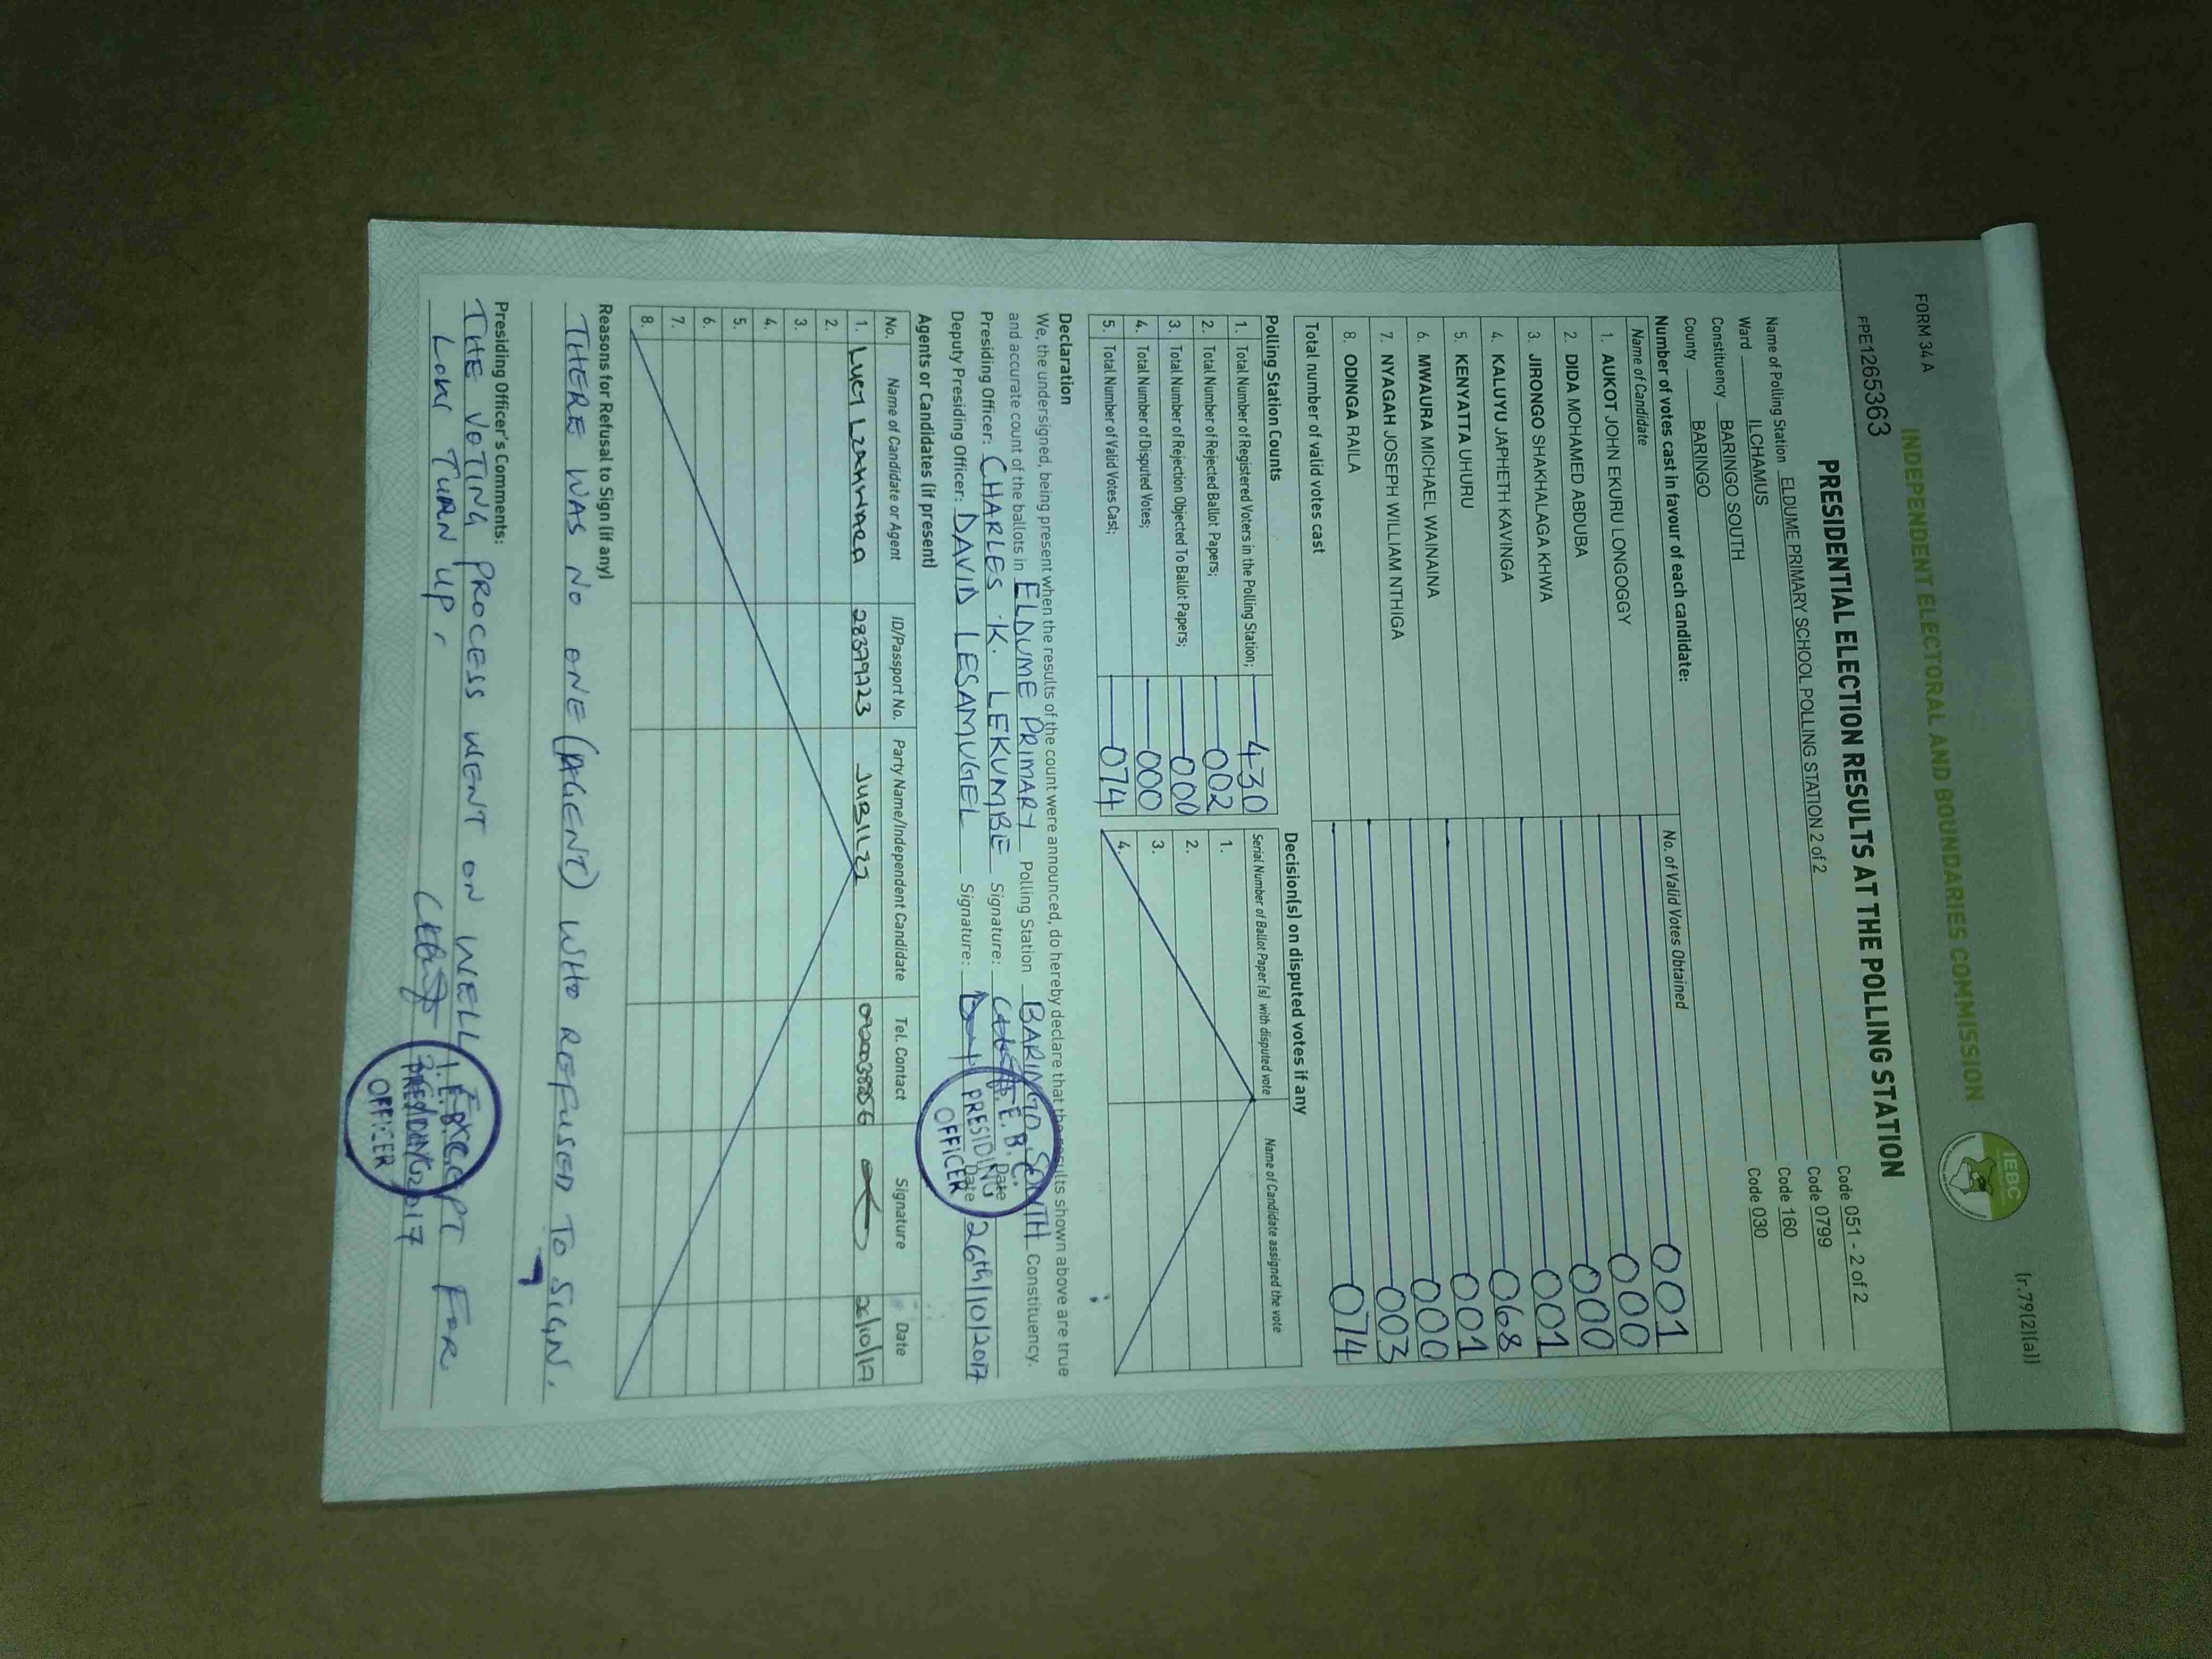 FORM 34 A
(r.79(2)(a))
INDEPENDENT ELECTORAL AND BOUNDARIES COMMISSION
IEBC
FPE1265363
PRESIDENTIAL ELECTION RESULTS AT THE POLLING STATION
Name of Polling Station ELDUME PRIMARY SCHOOL POLLING STATION 2 of 2 Code 051 - 2 of 2
Ward ILCHAMUS Code 0799
Constituency BARINGO SOUTH Code 160
County BARINGO Code 030
Number of votes cast in favour of each candidate:
Name of Candidate No. of Valid Votes Obtained
1. AUKOT JOHN EKURU LONGOGGY 001
2. DIDA MOHAMED ABDUBA 000
3. JIRONGO SHAKHALAGA KHWA 000
4. KALUYU JAPHETH KAVINGA 001
5. KENYATTA UHURU 068
6. MWAURA MICHAEL WAINAINA 001
7. NYAGAH JOSEPH WILLIAM NTHIGA 000
8. ODINGA RAILA 003
Total number of valid votes cast 074
Polling Station Counts
1. Total Number of Registered Voters in the Polling Station; 430
2. Total Number of Rejected Ballot Papers; 002
3. Total Number of Rejection Objected To Ballot Papers; 000
4. Total Number of Disputed Votes; 000
5. Total Number of Valid Votes Cast; 074
Decision(s) on disputed votes if any
Serial Number of Ballot Paper (s) with disputed vote Name of Candidate assigned the vote
1.
2.
3.
4.
Declaration
We, the undersigned, being present when the results of the count were announced, do hereby declare that the results shown above are true
and accurate count of the ballots in ELDUME PRIMARY Polling Station BARINGO SOUTH Constituency.
Presiding Officer: CHARLES K. LEKUMBE Signature: Date
Deputy Presiding Officer: DAVID LESAMUGEL Signature: Date 26th/10/2017
I.E.B.C.
PRESIDING
OFFICER
Agents or Candidates (if present)
No. Name of Candidate or Agent ID/Passport No. Party Name/Independent Candidate Tel. Contact Signature Date
1. Lucy 28379723
2.
3.
4.
5.
6.
7.
8.
Reasons for Refusal to Sign (if any)
THERE WAS NO ONE (AGENT) WHO REFUSED TO SIGN.
Presiding Officer's Comments:
THE VOTING PROCESS WENT ON WELL EXCEPT FOR
LOW TURN UP.
I.E.B.C.
PRESIDING
OFFICER